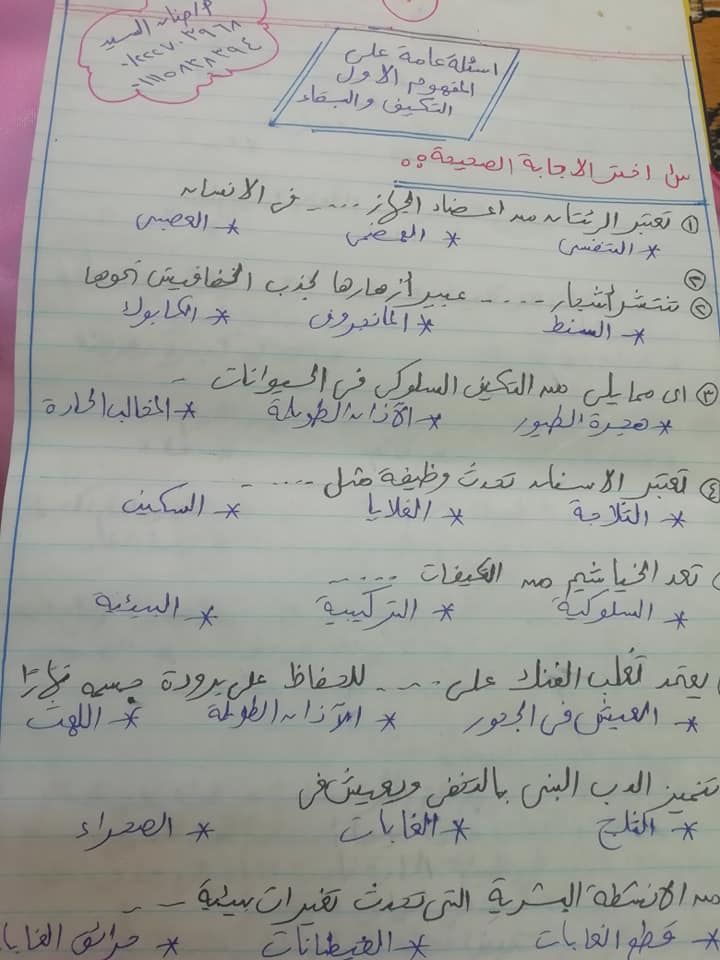 م/ حنان السيد
٠١١١٥٨٣٨٣٩٤
اسئلة عامة على
المفهوم الاول
التكيف والبقاء
س١ اختر الاجابة الصحيحة:
① تعتبر الرئتان من اعضاء الجهاز .... فى الانسان
* التنفسى * الهضمى * العصبى
② تنتشر أشجار .... عبير أزهارها لجذب الخفافيش نحوها
* السنط * المانجروف * الكابوك
③ اى مما يلى من التكيف السلوكى فى الحيوانات ..
* هجرة الطيور * الآذان الطويلة * المخالب الحادة
④ تعتبر الاسنان تحدث وظيفة مثل ....
* الثلاجة * الغلايا * السكين
تعد الخياشيم من التكيفات ....
* السلوكية * التركيبية * البيئية
يعتمد ثعلب الفنك على .... للحفاظ على برودة جسمه نهارًا
* العيش فى الجحور * الآذان الطويلة * اللهث
تتميز الدب البنى بالتخفى ويعيش فى
* الثلج * الغابات * الصحراء
من الانشطة البشرية التى تحدث تغيرات بيئية ..
* قطع الغابات * الفيضانات * حرائق الغابا